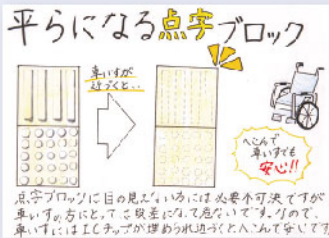 平らになる点字ブロック
車いすが
近づくと…
へこんで
車いすでも
安心!!
点字ブロックは目の見えない方には必要不可欠ですが
車いすの方にとっては段差になって危ないです。なので、
車いすにはICチップが埋められ近づくとへこんで安心です